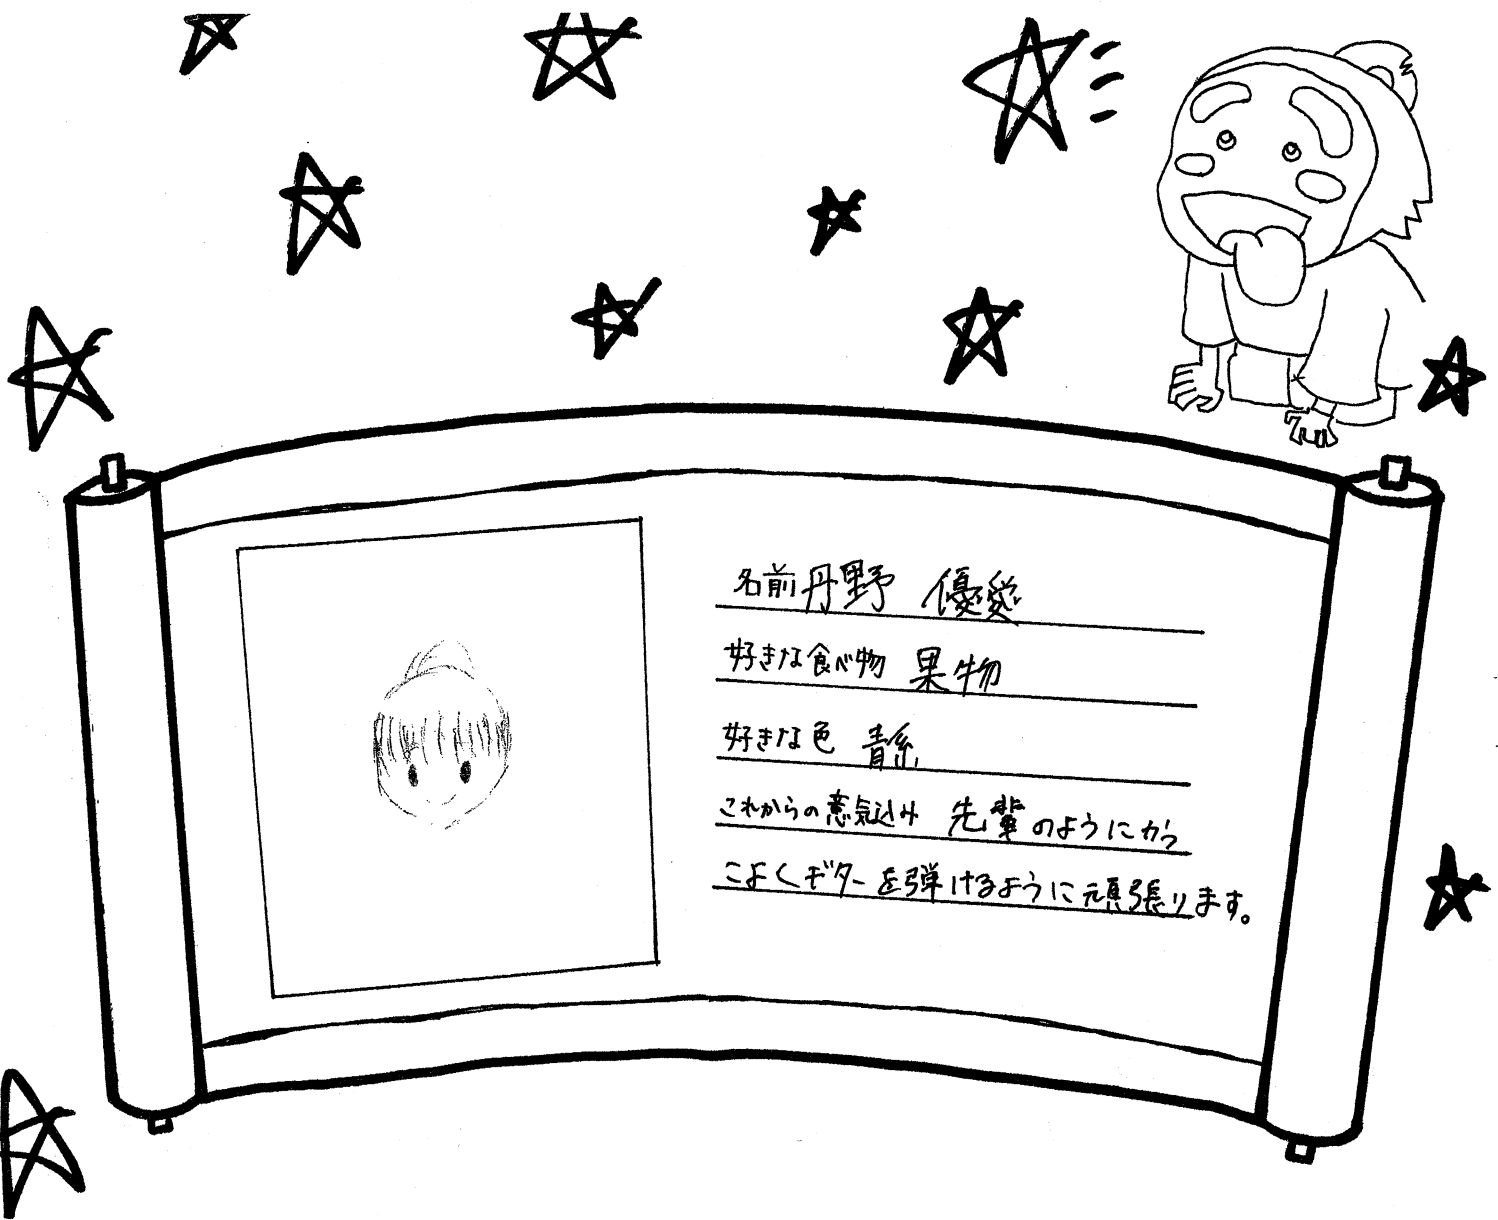 名前 丹野 優愛
好きな食べ物 果物
好きな色 青系
これからの意気込み 先輩のようにかっ
こよくギターを弾けるように頑張ります。